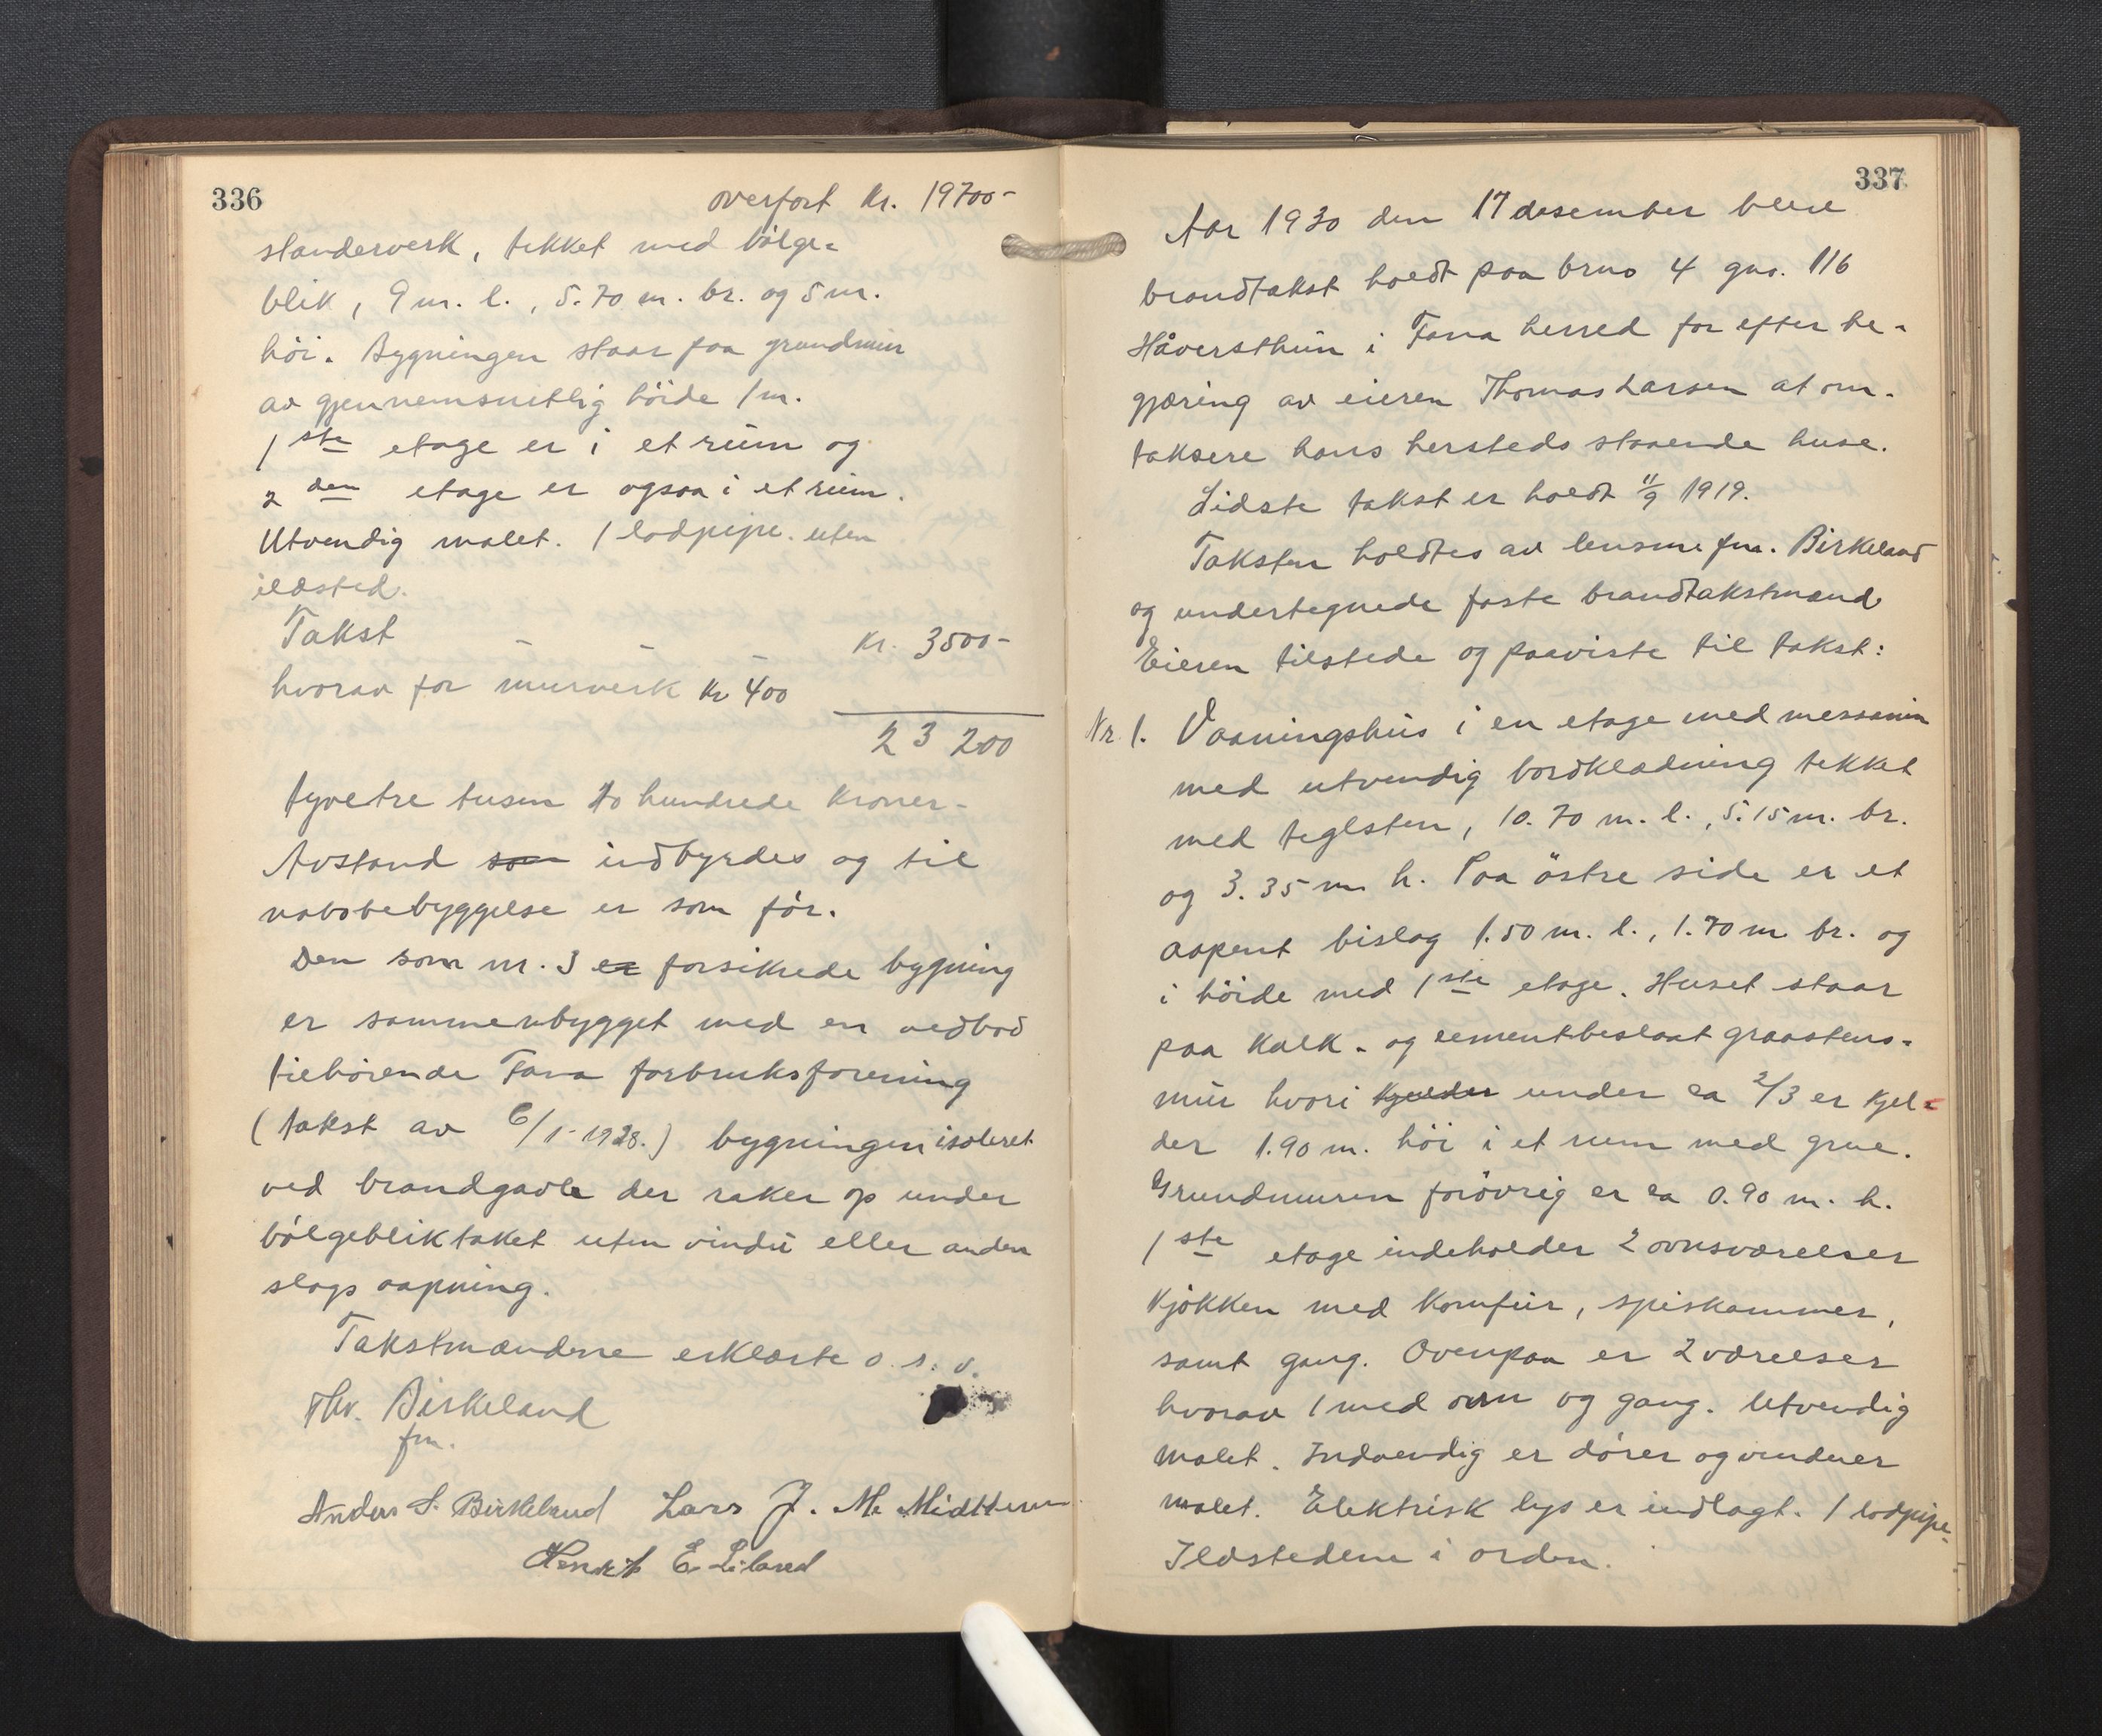 336
overført Kr. 19700-
standerverk, tekket med bølge-
blik, 9 m. l., 5.70 m. br. og 5 m.
höi. Bygningen staar paa grundmur
av gjennemsnitlig höide 1 m.
1ste etage er i et rum og
2den etage er ogsaa i et rum.
Utvendig malet. 1 lodpipe. uten
ildsted.
Takst - - - Kr. 3500-
hvorav for murverk Kr 400
23 200
tyvetre tusen to hundrede Kroner-
Avstand som indbyrdes og til
nabobebyggelse er som før.
Den som nr. 3 er forsikrede bygning
er sammenbygget med en vedbod
tilhörende Fana forbruksforening
(takst av 6/1-1928.) bygningen isoleret
ved brandgavle der raker op under
bølgebliktaket uten vindu eller anden
slags aapning.
Takstmændene erklærte o. s. v.
Thv. Birkeland
fm.
Anders S. Birkeland Lars J. M. Midttun
Henrik E. Liland
337
Aar 1930 den 17 desember blev
brandtakst holdt paa brno 4 gno. 116
Håversthun i Fana herred for efter be-
gjæring av eieren Thomas Larsen at om-
taksere hans hersteds staaende huse.
Sidste takst er holdt 11/9 1919.
Taksten holdtes av lensm. fm. Birkeland
og undertegnede faste brandtakstmænd
Eieren tilstede og paaviste til takst:
Nr. 1. Vaaningshus i en etage med messanin
med utvendig bordklædning tekket
med teglsten, 10.70 m. l., 5.15 m. br.
og 3.35 m h. Paa östre side er et
aapent bislag 1.50 m. l., 1.70 m br. og
i höide med 1ste etage. Huset staar
paa Kalk- og cementbeslaat graastens-
mur hvori kjælder under ca 2/3 er Kjel-
der 1.90 m. höi i et rum med grue.
Grundmuren forövrig er ca 0.90 m. h.
1ste etage indeholder 2 ovnsværelser
Kjökken med Komfur, spiskammer,
samt gang. Ovenpaa er 2 værelser
hvorav 1 med ovn og gang. Utvendig
malet. Indvendig er dörer og vinduer
malet. Elektrisk lys er indlagt. 1 lodpipe.
Ildstedene i orden.